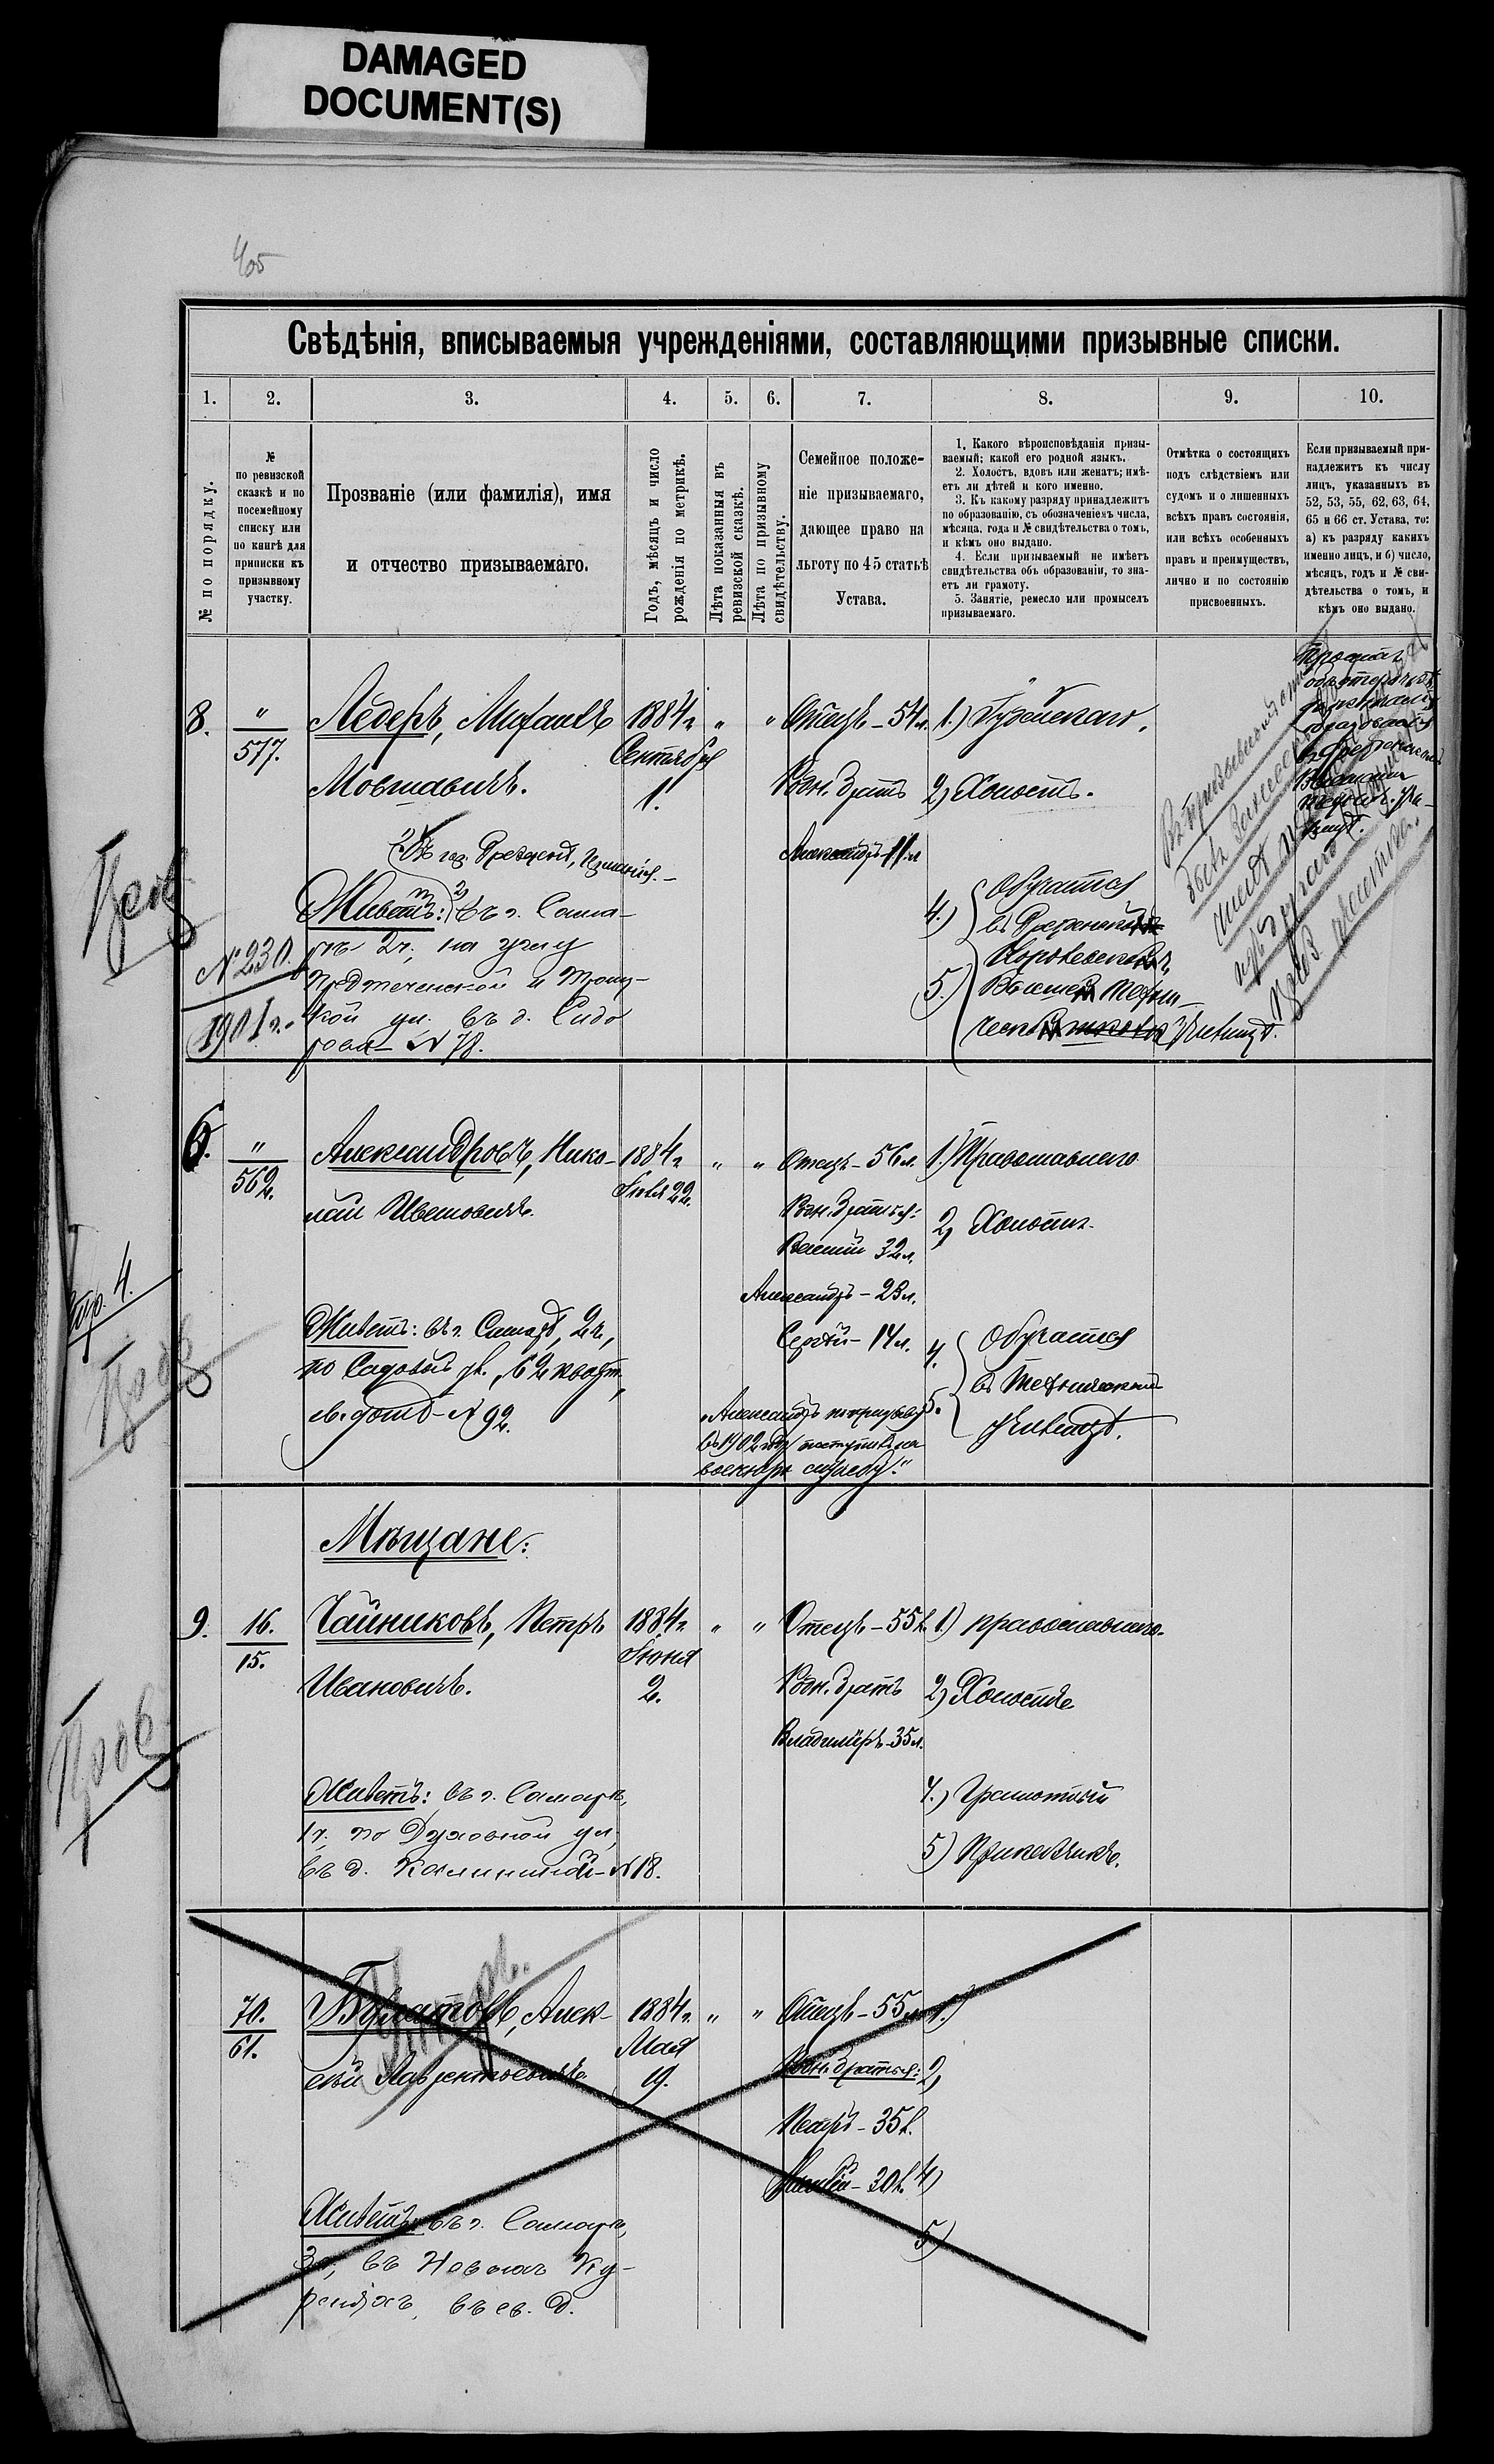 DAMAGED
DOCUMENT(S)
405
Свѣдѣнія, вписываемыя учрежденіями, составляющими призывные списки.
1. 2. 3. 4. 5. 6. 7. 8. 9. 10.
№ по порядку.
№
по ревизской
сказкѣ и по
посемейному
списку или
по книгѣ для
приписки къ
призывному
участку.
Прозваніе (или фамилія), имя
и отчество призываемаго.
Годъ, мѣсяцъ и число
рожденія по метрикѣ.
Лѣта показанныя въ
ревизской сказкѣ.
Лѣта по призывному
свидѣтельству.
Семейное положе-
ніе призываемаго,
дающее право на
льготу по 45 статьѣ
Устава.
1. Какого вѣроисповѣданія призы-
ваемый; какой его родной языкъ.
2. Холостъ, вдовъ или женатъ; имѣ-
етъ ли дѣтей и кого именно.
3. Къ какому разряду принадлежитъ
по образованію, съ обозначеніемъ числа,
мѣсяца, года и № свидѣтельства о томъ,
и кѣмъ оно выдано.
4. Если призываемый не имѣетъ
свидѣтельства объ образованіи, то зна-
етъ ли грамоту.
5. Занятіе, ремесло или промыселъ
призываемаго.
Отмѣтка о состоящихъ
подъ слѣдствіемъ или
судомъ и о лишенныхъ
всѣхъ правъ состоянія,
или всѣхъ особенныхъ
правъ и преимуществъ,
лично и по состоянію
присвоенныхъ.
Если призываемый при-
надлежитъ къ числу
лицъ, указанныхъ въ
52, 53, 55, 62, 63, 64,
65 и 66 ст. Устава, то:
а) къ разряду какихъ
именно лицъ, и б) число,
мѣсяцъ, годъ и № сви-
дѣтельства о томъ, и
кѣмъ оно выдано.
8. " 577. Ледеръ, Михаилъ 1884 г. " " Отецъ – 54 л. 1.) Іудейскаго.
Сентября
Мовшавичъ. 1. Родн. братъ 2) Холостъ.
Александръ 11 л
Живетъ: въ г. Сама-
рѣ 2 ч., на углу
Предтеченской и Троиц-
кой ул. въ д. Сидо
рова – № 78.
№ 230.
1901 г.
4.) Обучается
въ
5.) Высшей Техни-
Училищѣ.
6. " 562. Александровъ, Нико- 1884 г. " " Отецъ – 56 л. 1.) Православнаго
Іюля 22.
лай Ивановичъ. Родн. братья: 2) Холостъ.
Василій 32 л.
Александръ – 23 л.
Сергѣй – 14 л.
Живетъ: въ г. Самарѣ, 2 ч.,
по Садовой ул., 62 кварт.,
св. домѣ – № 92.
4. Обучается
5. въ Техническомъ
училищѣ.
„Александръ по призыву
въ 1902 году поступилъ на
военную службу."
Стр. 4.
Мѣщане:
9. 16. 15. Чайниковъ, Петръ 1884 г. " " Отецъ – 55 л. 1.) православнаго.
Іюня
Ивановичъ. 2. Родн. братъ 2) Холостъ
Владиміръ – 35 л.
Живетъ: въ г. Самарѣ,
1 ч. по Духовной ул,
въ д. Калининой – № 18.
4.) Грамотный
5) Приказчикъ.
70. 61. Булатовъ, Алек- 1884 г. " " Отецъ – 55 л. 1.)
Мая
сѣй Лаврентьевичъ 9. Родн. братья: 2)
Петръ – 35 л.
30 л. 4)
5)
Живетъ: въ г. Самарѣ,
3 ч., въ Новыхъ Ку-
въ св. д.